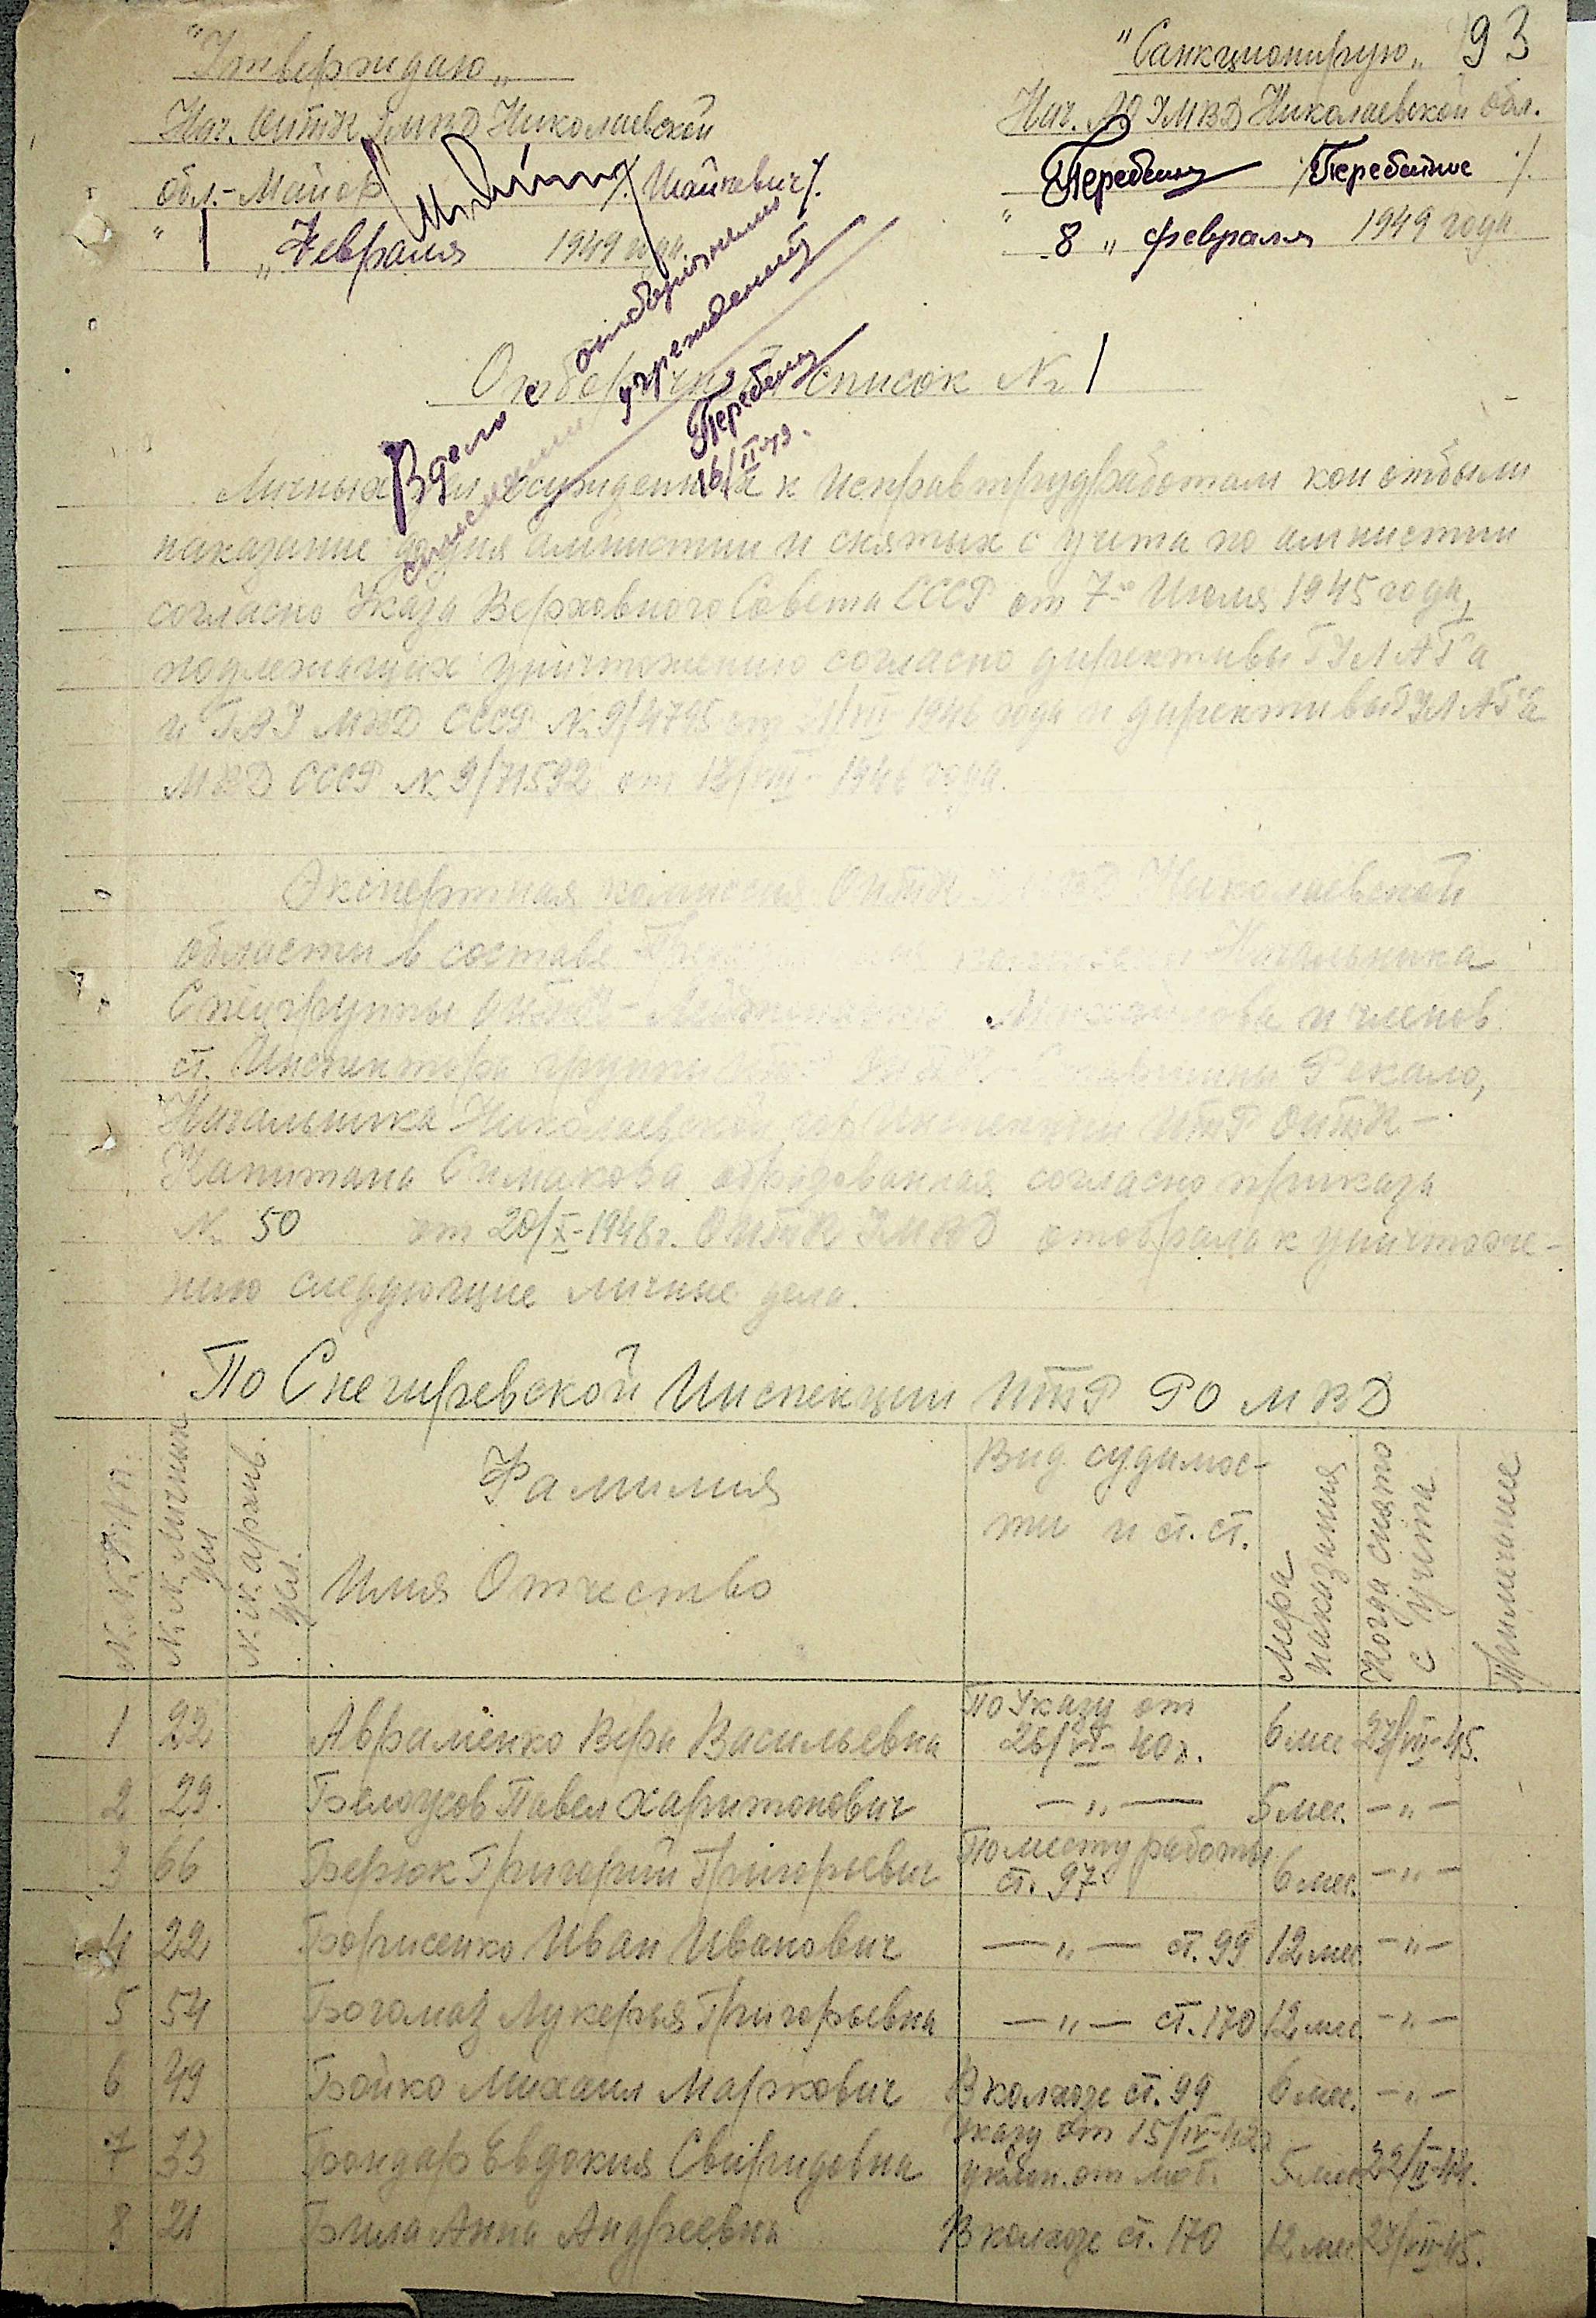 "Утверждаю"
Нач. ОИТК УМВД Николаевской
обл. - Майор /Шайкевич/.
"1" Февраля 1949 года
"Санкционирую" 93
Нач. АО УМВД Николаевской обл.
/Перебейнос/.
"8" февраля 1949 года
В дело с отборочными
учреждений
16/II-49.
Отборочный список № 1
Личных дел осужденных к исправтрудработам кои отбыли
наказание до дня амнистии и снятых с учета по амнистии
согласно Указа Верховного Совета СССР от 7го Июля 1945 года,
подлежащих уничтожению согласно директивы ГУЛАГ'а
и ГАУ МВД СССР № 9/4795 от 1946 года и директивы ГУЛАГ'а
МВД СССР № 9/71592 от 13/VIII-1946 года.
Экспертная комиссия ОИТК УМВД Николаевской
области в составе Начальника
Спецгруппы ОИТК - и членов
ст. Инспектора группы Рекало,
Начальника Николаевской инспекции ИТР ОИТК -
Капитана Симакова образованная согласно приказа
№ 50 от 20/X-1948г. ОИТК УМВД отобрала к уничтоже-
нию следующие личные дела.
По Снегиревской Инспекции ИТР РО МВД
№ № п/п. № № Личных дел № № архив. дел. Фамилия Имя Отчество Вид судимос-ти и ст. ст. Мера наказания Когда снято с учета Примечание
1 22 Авраменко Вера Васильевна По Указу от 26/VI-40г. 6 мес 27/VII-45.
2 29. Белоусов Павел Харитонович —"— 5 мес. —"—
3 66 Берюк Григорий Григорьевич По месту работы ст. 97 6 мес. —"—
4 22 Борисенко Иван Иванович —"— ст. 99 12 мес. —"—
5 54 Богомаз Лукерья Григорьевна —"— ст. 170 12 мес. —"—
6 49 Бойко Михаил Маркович В колхозе ст. 99 6 мес. —"—
7 33 Бондар Евдокия Свиридовна Указу от 15/IV-42г уклон. от моб. 5 мес 22/II-44.
8 21 Била Анна Андреевна В колхозе ст. 170 12 мес 27/VII-45.